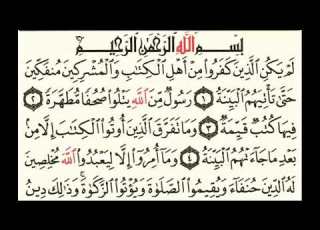 بِسْمِ اللَّهِ الرَّحْمَٰنِ الرَّحِيمِ
لَمْ يَكُنِ الَّذِينَ كَفَرُوا مِنْ أَهْلِ الْكِتَابِ وَالْمُشْرِكِينَ مُنفَكِّينَ
حَتَّىٰ تَأْتِيَهُمُ الْبَيِّنَةُ ١ رَسُولٌ مِّنَ اللَّهِ يَتْلُوا صُحُفًا مُّطَهَّرَةً ٢
فِيهَا كُتُبٌ قَيِّمَةٌ ٣ وَمَا تَفَرَّقَ الَّذِينَ أُوتُوا الْكِتَابَ إِلَّا مِن
بَعْدِ مَا جَاءَتْهُمُ الْبَيِّنَةُ ٤ وَمَا أُمِرُوا إِلَّا لِيَعْبُدُوا اللَّهَ مُخْلِصِينَ
لَهُ الدِّينَ حُنَفَاءَ وَيُقِيمُوا الصَّلَوٰةَ وَيُؤْتُوا الزَّكَوٰةَ ۚ وَذَٰلِكَ دِينُ